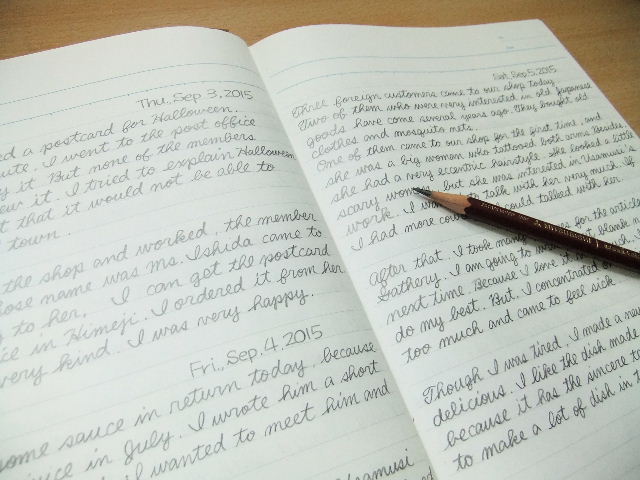 Thu., Sep 3, 2015
ed a postcard for Halloween.
ute. I went to the post office
y it. But none of the members
ew it. I tried to explain Halloween
t that it would not be able to
town.
the shop and worked, the member
hose name was Ms. Ishida came to
g to her. I can get the postcard
ice in Himeji. I ordered it from her.
very kind. I was very happy.
Fri., Sep. 4, 2015
some sauce in return today, because
juice in July. I wrote him a short
I wanted to meet him and
Usamusi
Sat., Sep. 5, 2015
Three foreign customers came to our shop today.
Two of them who were very interested in old Japanese
goods have come several years ago. They bought old
clothes and mosquito nets.
One of them came to our shop for the first time, and
she was a big woman who tattooed both arms. Besides
she had a very eccentric hairstyle. She looked a little
scary woman, but she was interested in Usamusi's
work. I wan to talk with her very much. If
I had more cou could talked with her.
After that, I took many for the article
Gathery. I am going to
next time. Because I love it
do my best. But, I concentrated
too much and came to feel sick.
Though I was tired, I made a
delicious. I like the dish made
because it has the sincere
to make a lot of dish in